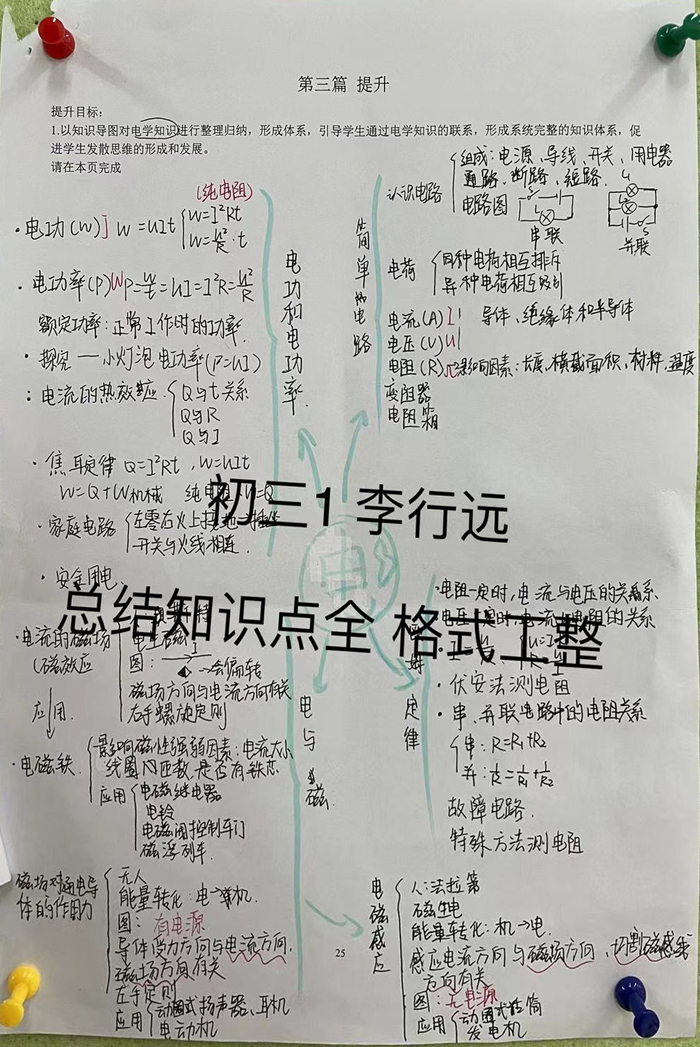 第三篇 提升
提升目标：
1.以知识导图对电学知识进行整理归纳，形成体系，引导学生通过电学知识的联系，形成系统完整的知识体系，促
进学生发散思维的形成和发展。
请在本页完成
(纯电阻)
·电功(W)J W=UIt
W=I²Rt
W=U²/R·t
·电功率(P)W P=W/t=UI=I²R=U²/R
额定功率:正常工作时的功率.
·探究——小灯泡电功率(P=UI)
:电流的热效应
Q与t关系
Q与R
Q与I
·焦耳定律 Q=I²Rt,W=UIt
W=Q+W机械 纯电
·家庭电路
左零右火上接地
开关与火线相连
·安全用电.
电功和电功率
简单的电路
认识电路
组成:电源、导线、开关、用电器
通路、断路、短路.
电路图
串联
并联
电荷
同种电荷相互排斥
异种电荷相互吸引
电流(A)I
导体、绝缘体和半导体
电压(V)U
电阻(R)Ω影响因素:长度、横截面积、材料、温度
变阻器
电阻箱
电
初三1 李行远
总结知识点全 格式工整
·电阻一定时,电流与电压的关系
电流与电阻的关系
·伏安法测电阻
·串、并联电路中的电阻关系
串:R=R₁+R₂
并:1/R=1/R₁+1/R₂
故障电路.
特殊方法测电阻
定律
·电流的磁场
(磁效应
电生磁
图:
→会偏转
磁场方向与电流方向有关
右手螺旋定则
应用.
·电磁铁
影响磁性强弱因素:电流大小
线圈匝数,是否有铁芯
应用
电磁继电器
电铃
电磁阀控制车门
磁浮列车.
电与磁
磁场对通电导
体的作用力
无人
能量转化:电→机.
图:有电源
导体受力方向与电流方向,
磁场方向有关
左手定则
应用
动圈式扬声器、耳机
电动机
25
电磁感应
人:法拉第
磁生电
能量转化:机→电.
感应电流方向与磁场方向、切割磁感线
方向有关
图:无电源
应用
动圈式话筒
发电机